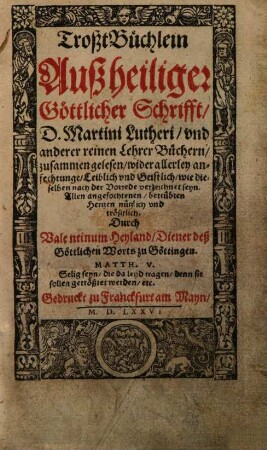 Troßt Büchlein
Außheiliger
Göttlicher Schrifft/
D. Martini Lutheri/ vnd
anderer reinen Lehrer Büchern/
zusammen gelesen/ wider allerley an-
fechtunge/ Leiblich vnd Geistlich/ wie die
selben nach der Vorrede verzeichnet seyn.
Allen angefochtenen/ betrübten
Hertzen nützlich vnd
tröstlich.
Durch
Valentinum Heyland/ Diener deß
Göttlichen Worts zu Göttingen.
MATTH. V.
Selig seyn/ die da leyd tragen/ denn sie
sollen getröstet werden/ etc.
Gedruckt zu Franckfurt am Mayn/
M. D. LXXVI.